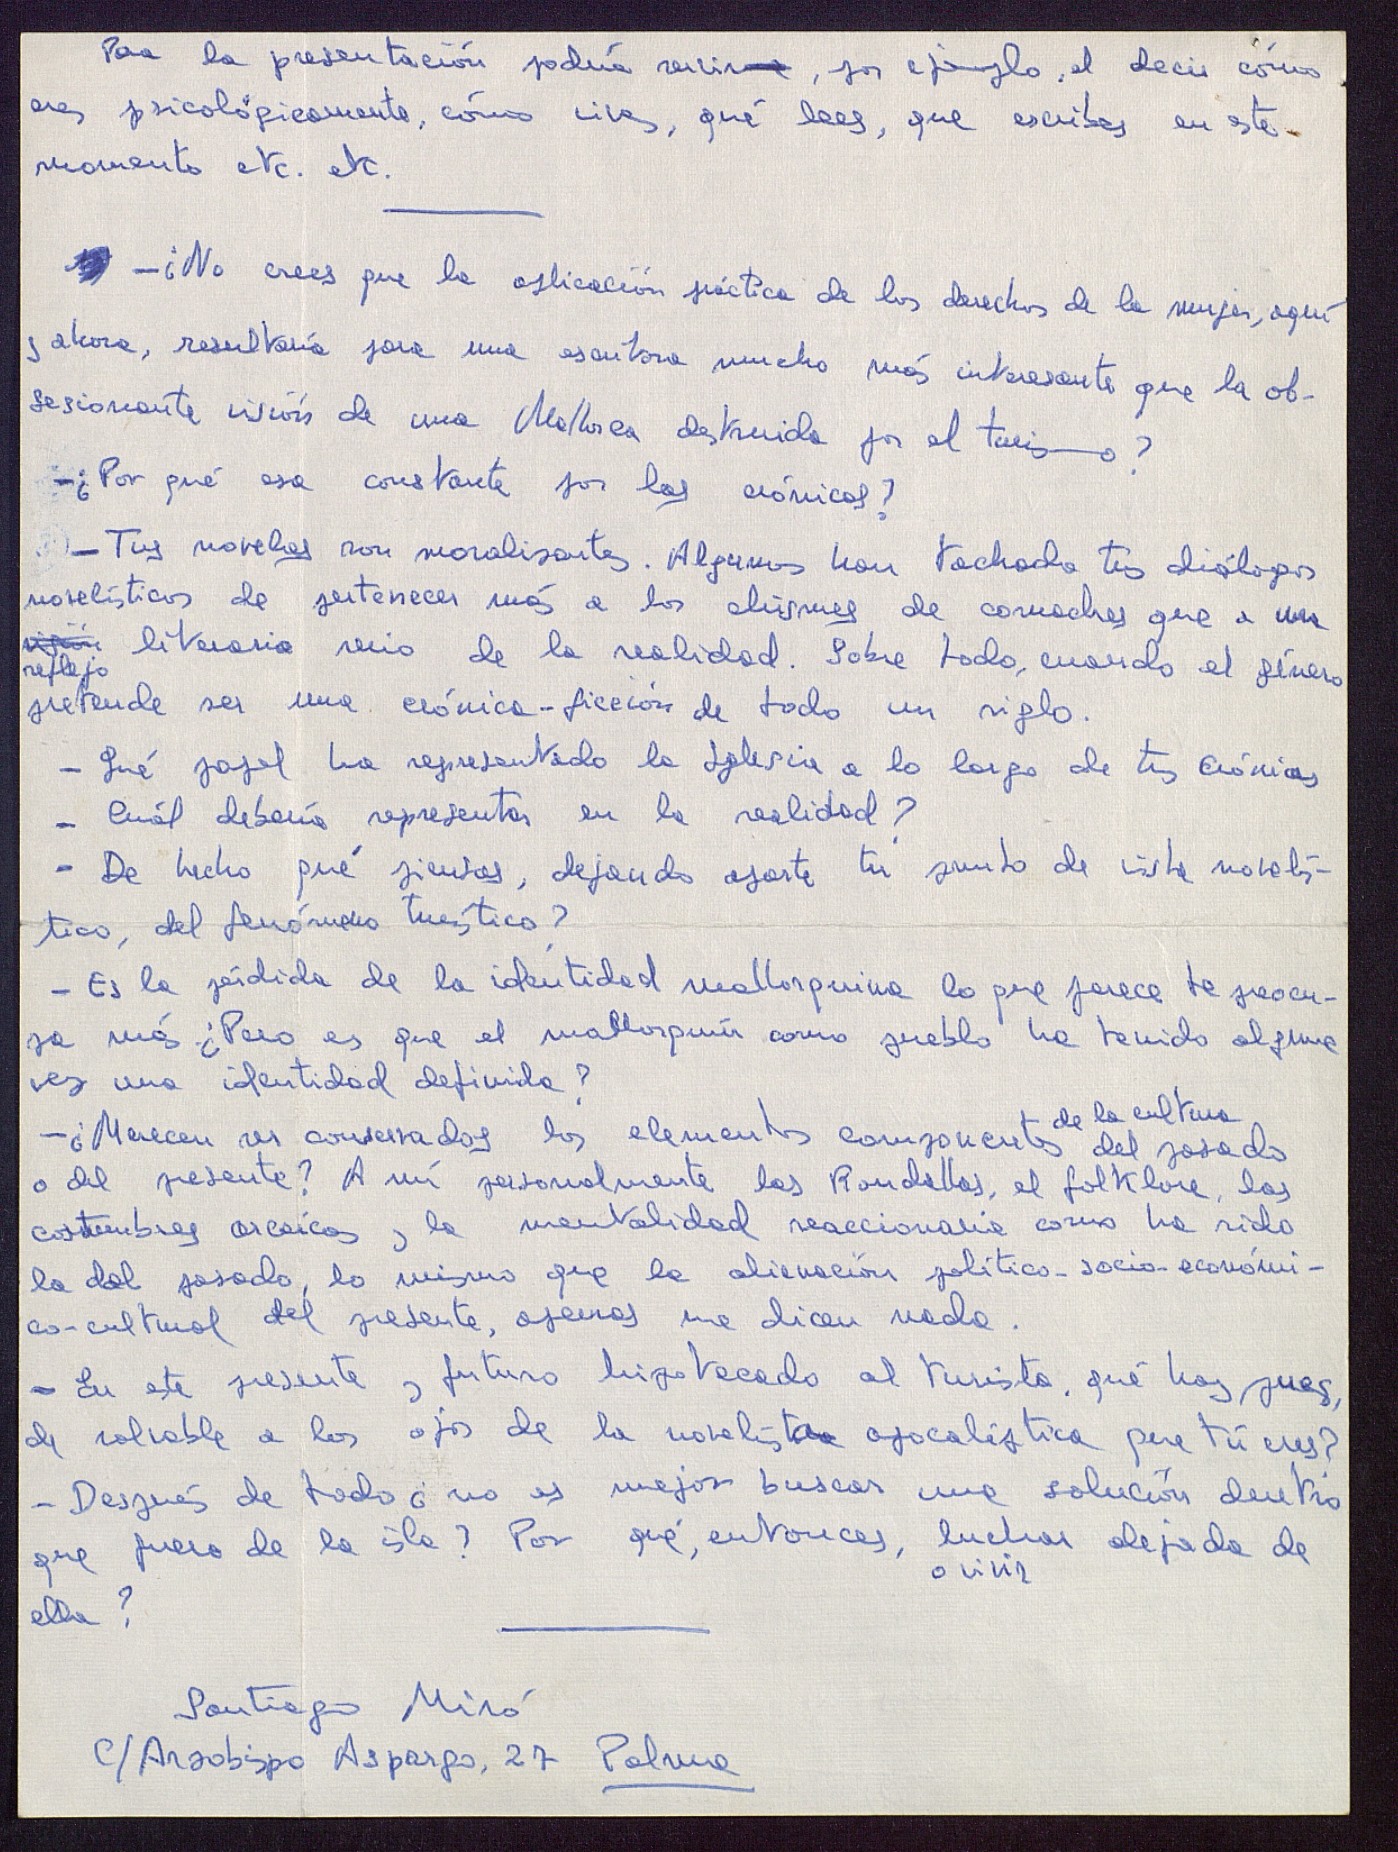 Para la presentación podría servir, por ejemplo, el decir cómo
eres psicológicamente, cómo vives, qué lees, que escribes en este
momento etc. etc.
- ¿No crees que la aplicación práctica de los derechos de la mujer, aquí
y ahora, resultaría para una escritora mucho más interesante que la ob-
sesionante visión de una Mallorca destruida por el turismo?
- ¿Por qué esa constante por las crónicas?
- Tus novelas son moralisantes. Algunos han tachado tus diálogos
novelísticos de pertenecer más a los chismes de comadres que a un
visión literario serio de la realidad. Sobre todo, cuando el género
reflejo
pretende ser una crónica-ficción de todo un siglo.
- Qué papel ha representado la Iglesia a lo largo de tus Crónicas
- Cuál debería representar en la realidad?
- De hecho qué piensas, dejando aparte tu punto de vista novelís-
tico, del fenómeno turístico?
- Es la pérdida de la identidad mallorquina lo que parece te preocu-
pa más ¿Pero es que el mallorquín como pueblo ha tenido alguna
vez una identidad definida?
de la cultura
- ¿Merecen ser conservados los elementos componentes del pasado
o del presente? A mí personalmente las Rondallas, el folklore, las
costumbres arcaicas y la mentalidad reaccionaria como ha sido
la del pasado, lo mismo que la alienación político-socio-económi-
co-cultural del presente, apenas me dicen nada.
- En este presente y futuro hipotecado al turista, qué hay pues,
de salvable a los ojos de la novelista apocalíptica que tú eres?
- Después de todo ¿no es mejor buscar una solución dentro
que fuera de la isla? Por qué, entonces, luchar alejada de
o vivir
ella?
Santiago Miró
C/Arzobispo Aspargo, 27 Palma